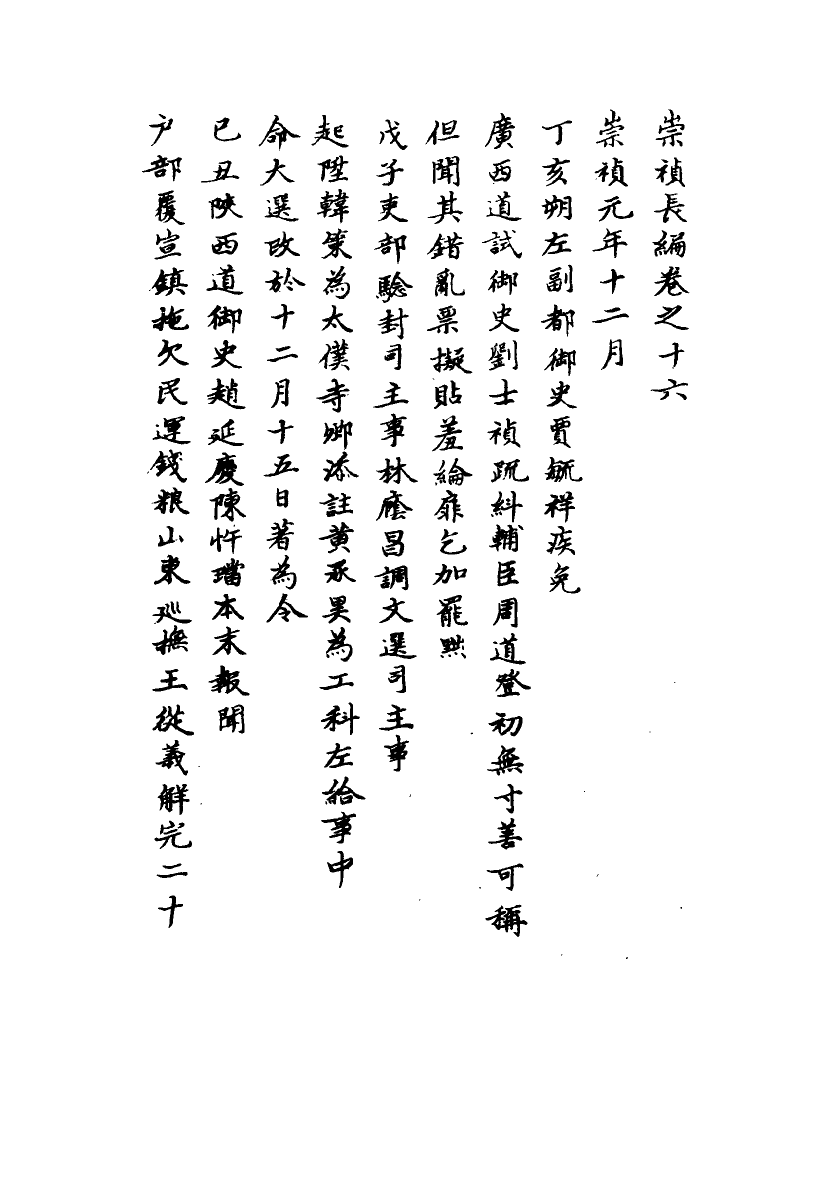 崇禎長編卷之十六
崇禎元年十二月
丁亥朔左副都御史賈毓祥疾免
廣西道試御史劉士禎疏糾輔臣周道登初無寸善可稱
但聞其錯亂票擬貽羞綸扉乞加罷黜
戊子吏部驗封司主事林應昌調文選司主事
起陞韓策為太僕寺卿添註黃承昊為工科左給事中
命大選改於十二月十五日著為令
己丑陝西道御史趙延慶陳忤璫本末報聞
戶部覆宣鎮拖欠民運錢粮山東巡撫王從義解完二十